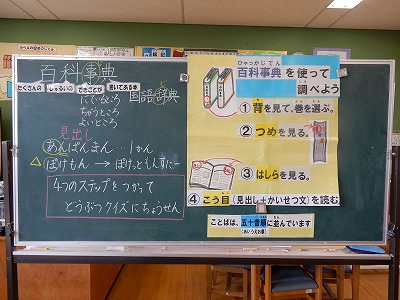 百科事典
たくさんの しゅるいの できごとが 書いてある本
にているところ
ちがうところ
よいところ
国語辞典
見出し
あんぱんまん…1かん
△ ぽけもん → ぽけっともんすたー
4つのステップをつかって
どうぶつクイズにちょうせん
ひゃっかじてん
百科事典を使って
調べよう
①背を見て、巻を選ぶ。
②つめを見る。
③はしらを見る。
④こう目(見出し+かいせつ文)を読む
ことばは、五十音順に並んでいます
(あいうえお順)